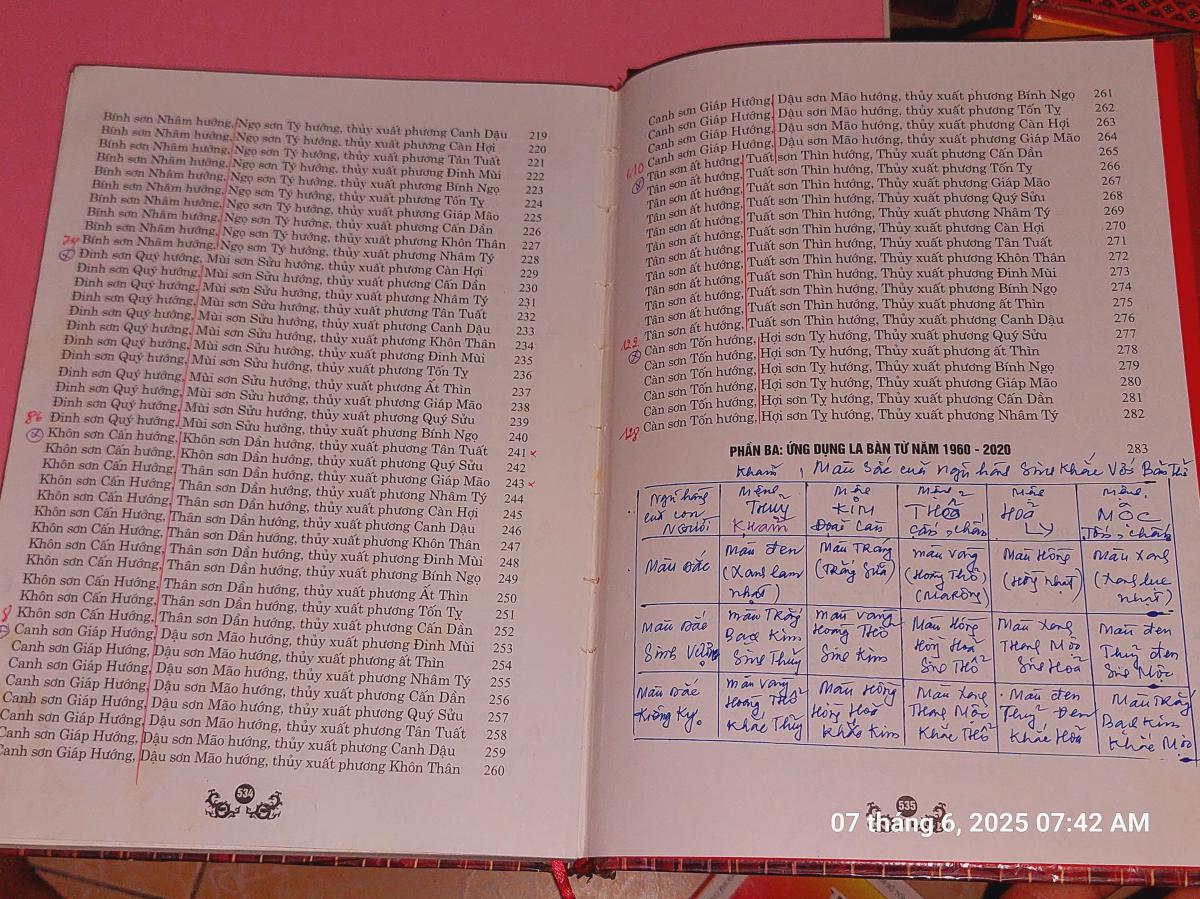 Bính sơn Nhâm hướng, Ngọ sơn Tý hướng, thủy xuất phương Canh Dậu 219
Bính sơn Nhâm hướng, Ngọ sơn Tý hướng, thủy xuất phương Càn Hợi 220
Bính sơn Nhâm hướng, Ngọ sơn Tý hướng, thủy xuất phương Tân Tuất 221
Bính sơn Nhâm hướng, Ngọ sơn Tý hướng, thủy xuất phương Đinh Mùi 222
Bính sơn Nhâm hướng, Ngọ sơn Tý hướng, thủy xuất phương Bính Ngọ 223
Bính sơn Nhâm hướng, Ngọ sơn Tý hướng, thủy xuất phương Tốn Tỵ 224
Bính sơn Nhâm hướng, Ngọ sơn Tý hướng, thủy xuất phương Giáp Mão 225
Bính sơn Nhâm hướng, Ngọ sơn Tý hướng, thủy xuất phương Cấn Dần 226
Bính sơn Nhâm hướng, Ngọ sơn Tý hướng, thủy xuất phương Khôn Thân 227
74 Bính sơn Nhâm hướng, Ngọ sơn Tý hướng, thủy xuất phương Nhâm Tý 228
Đinh sơn Quý hướng, Mùi sơn Sửu hướng, thủy xuất phương Càn Hợi 229
Đinh sơn Quý hướng, Mùi sơn Sửu hướng, thủy xuất phương Cấn Dần 230
Đinh sơn Quý hướng, Mùi sơn Sửu hướng, thủy xuất phương Nhâm Tý 231
Đinh sơn Quý hướng, Mùi sơn Sửu hướng, thủy xuất phương Tân Tuất 232
Đinh sơn Quý hướng, Mùi sơn Sửu hướng, thủy xuất phương Canh Dậu 233
Đinh sơn Quý hướng, Mùi sơn Sửu hướng, thủy xuất phương Khôn Thân 234
Đinh sơn Quý hướng, Mùi sơn Sửu hướng, thủy xuất phương Đinh Mùi 235
Đinh sơn Quý hướng, Mùi sơn Sửu hướng, thủy xuất phương Tốn Tỵ 236
Đinh sơn Quý hướng, Mùi sơn Sửu hướng, thủy xuất phương Ất Thìn 237
Đinh sơn Quý hướng, Mùi sơn Sửu hướng, thủy xuất phương Giáp Mão 238
Đinh sơn Quý hướng, Mùi sơn Sửu hướng, thủy xuất phương Quý Sửu 239
86 Đinh sơn Quý hướng, Mùi sơn Sửu hướng, thủy xuất phương Bính Ngọ 240
Khôn sơn Cấn hướng, Khôn sơn Dần hướng, thủy xuất phương Tân Tuất 241 x
Khôn sơn Cấn Hướng, Khôn sơn Dần hướng, thủy xuất phương Quý Sửu 242
Khôn sơn Cấn Hướng, Thân sơn Dần hướng, thủy xuất phương Giáp Mão 243 x
Khôn sơn Cấn Hướng, Thân sơn Dần hướng, thủy xuất phương Nhâm Tý 244
Khôn sơn Cấn Hướng, Thân sơn Dần hướng, thủy xuất phương Càn Hợi 245
Khôn sơn Cấn Hướng, Thân sơn Dần hướng, thủy xuất phương Canh Dậu 246
Khôn sơn Cấn Hướng, Thân sơn Dần hướng, thủy xuất phương Khôn Thân 247
Khôn sơn Cấn Hướng, Thân sơn Dần hướng, thủy xuất phương Đinh Mùi 248
Khôn sơn Cấn Hướng, Thân sơn Dần hướng, thủy xuất phương Bính Ngọ 249
Khôn sơn Cấn Hướng, Thân sơn Dần hướng, thủy xuất phương Ất Thìn 250
Khôn sơn Cấn Hướng, Thân sơn Dần hướng, thủy xuất phương Tốn Tỵ 251
Khôn sơn Cấn Hướng, Thân sơn Dần hướng, thủy xuất phương Cấn Dần 252
Canh sơn Giáp Hướng, Dậu sơn Mão hướng, thủy xuất phương Đinh Mùi 253
Canh sơn Giáp Hướng, Dậu sơn Mão hướng, thủy xuất phương ất Thìn 254
Canh sơn Giáp Hướng, Dậu sơn Mão hướng, thủy xuất phương Nhâm Tý 255
Canh sơn Giáp Hướng, Dậu sơn Mão hướng, thủy xuất phương Cấn Dần 256
Canh sơn Giáp Hướng, Dậu sơn Mão hướng, thủy xuất phương Quý Sửu 257
Canh sơn Giáp Hướng, Dậu sơn Mão hướng, thủy xuất phương Tân Tuất 258
Canh sơn Giáp Hướng, Dậu sơn Mão hướng, thủy xuất phương Canh Dậu 259
Canh sơn Giáp Hướng, Dậu sơn Mão hướng, thủy xuất phương Khôn Thân 260
534
Canh sơn Giáp Hướng, Dậu sơn Mão hướng, thủy xuất phương Bính Ngọ 261
Canh sơn Giáp Hướng, Dậu sơn Mão hướng, thủy xuất phương Tốn Tỵ 262
Canh sơn Giáp Hướng, Dậu sơn Mão hướng, thủy xuất phương Càn Hợi 263
Canh sơn Giáp Hướng, Dậu sơn Mão hướng, thủy xuất phương Giáp Mão 264
Tân sơn ất hướng, Tuất sơn Thìn hướng, Thủy xuất phương Cấn Dần 265
Tân sơn ất hướng, Tuất sơn Thìn hướng, Thủy xuất phương Tốn Tỵ 266
Tân sơn ất hướng, Tuất sơn Thìn hướng, Thủy xuất phương Giáp Mão 267
Tân sơn ất hướng, Tuất sơn Thìn hướng, Thủy xuất phương Quý Sửu 268
Tân sơn ất hướng, Tuất sơn Thìn hướng, Thủy xuất phương Nhâm Tý 269
Tân sơn ất hướng, Tuất sơn Thìn hướng, Thủy xuất phương Càn Hợi 270
Tân sơn ất hướng, Tuất sơn Thìn hướng, Thủy xuất phương Tân Tuất 271
Tân sơn ất hướng, Tuất sơn Thìn hướng, Thủy xuất phương Khôn Thân 272
Tân sơn ất hướng, Tuất sơn Thìn hướng, Thủy xuất phương Đinh Mùi 273
Tân sơn ất hướng, Tuất sơn Thìn hướng, Thủy xuất phương Bính Ngọ 274
Tân sơn ất hướng, Tuất sơn Thìn hướng, Thủy xuất phương ất Thìn 275
Tân sơn ất hướng, Tuất sơn Thìn hướng, Thủy xuất phương Canh Dậu 276
122 Càn sơn Tốn hướng, Hợi sơn Tỵ hướng, Thủy xuất phương Quý Sửu 277
Càn sơn Tốn hướng, Hợi sơn Tỵ hướng, Thủy xuất phương ất Thìn 278
Càn sơn Tốn hướng, Hợi sơn Tỵ hướng, Thủy xuất phương Bính Ngọ 279
Càn sơn Tốn hướng, Hợi sơn Tỵ hướng, Thủy xuất phương Giáp Mão 280
Càn sơn Tốn hướng, Hợi sơn Tỵ hướng, Thủy xuất phương Cấn Dần 281
128 Càn sơn Tốn hướng, Hợi sơn Tỵ hướng, Thủy xuất phương Nhâm Tý 282
PHẦN BA: ỨNG DỤNG LA BÀN TỪ NĂM 1960 - 2020 283
Màu Sắc của ngũ hành Sinh Khắc Với Bản
Ngũ hành của con Người
Mệnh Thuỷ Khảm
Mệnh KIM Đoài Càn
Mệnh THỔ Cấn,
Mệnh HOẢ
Mệnh MỘC
Màu Sắc
Màu đen (Xanh lam nhạt)
Màu Trắng (Trắng Sữa)
màu vàng (Hoàng Thổ)
Màu Hồng (Hồng nhạt)
Màu Xanh (Xanh lục nhạt)
Màu Sắc Sinh Vượng
màu Trắng Bạch Kim Sinh Thuỷ
màu vàng Hoàng Thổ Sinh Kim
Màu Hồng Hồng Hoả Sinh Thổ
Màu Xanh Thanh Mộc Sinh Hoả
Màu đen Thuỷ đen Sinh Mộc
Màu Sắc Kiêng Kỵ
màu vàng Hoàng Thổ Khắc Thủy
Màu Hồng Hồng Hoả Khắc Kim
Màu Xanh Thanh Mộc Khắc Thổ
Màu đen Thuỷ Đen Khắc Hoả
Màu Trắng Bạch Kim Khắc Mộc
535
07 tháng 6, 2025 07:42 AM